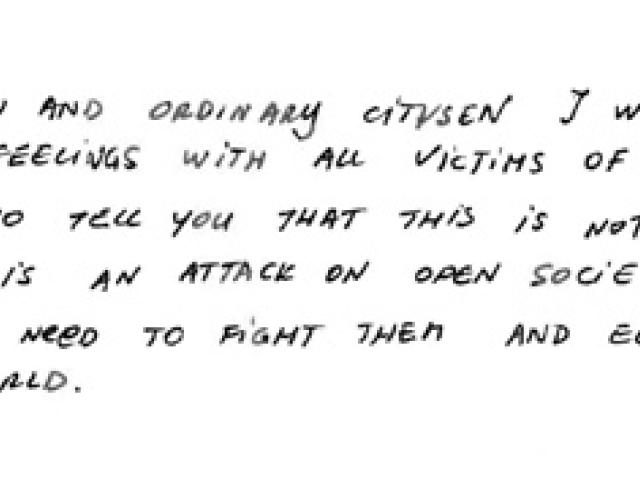 AND ORDINARY CITYSEN I W
FEELINGS WITH ALL VICTIMS OF
O TELL YOU THAT THIS IS NOT
IS AN ATTACK ON OPEN SOCIE
NEED TO FIGHT THEM AND E
RLD.